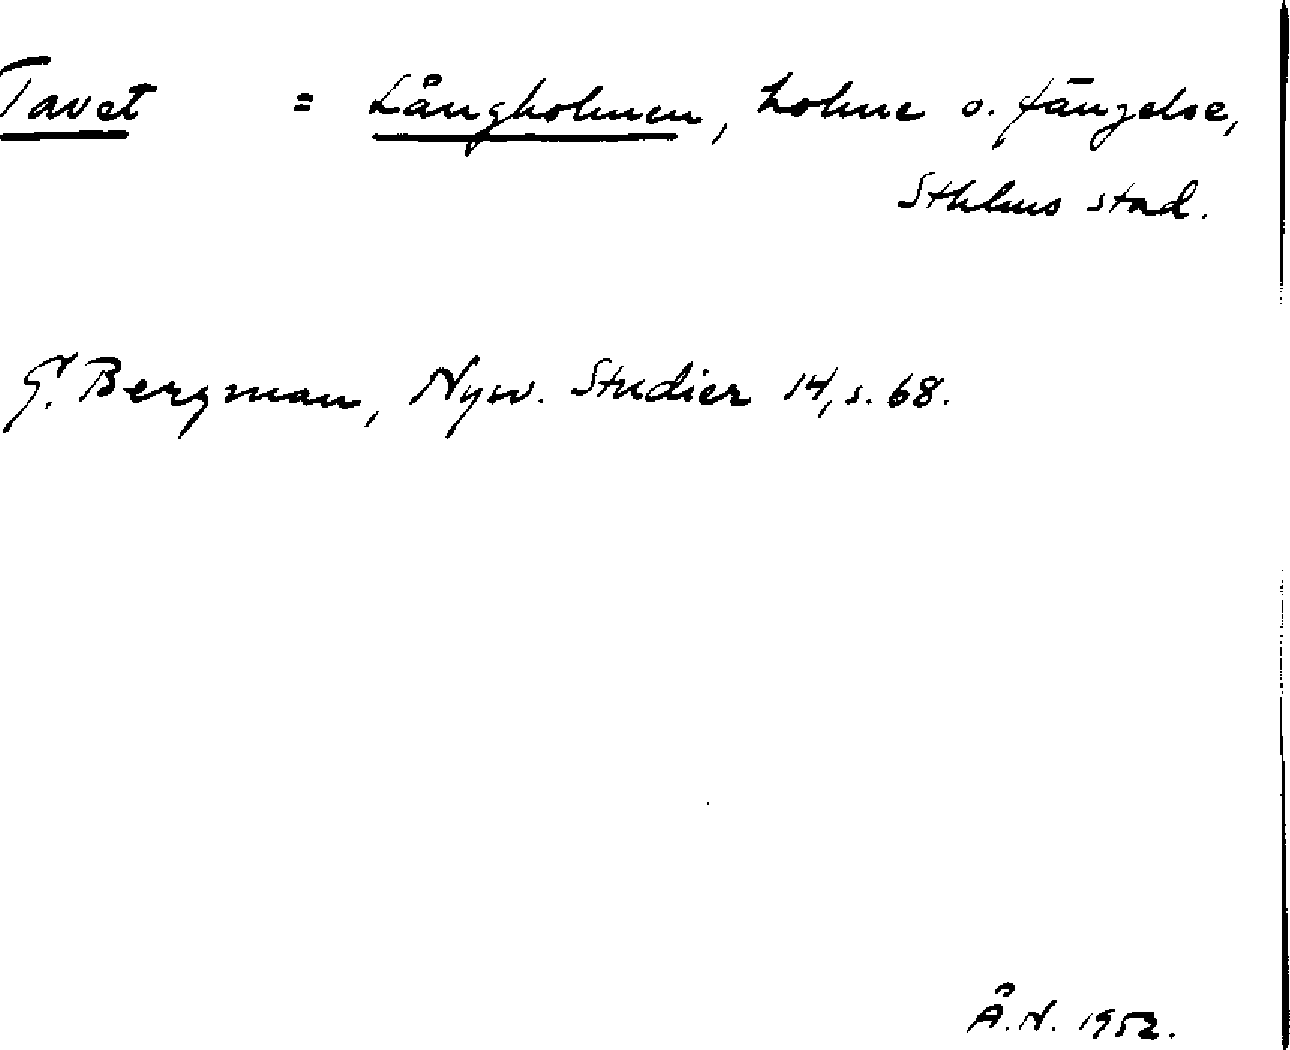 Tavet = Långholmen, holme o. fängelse,
Sthlms stad.
G. Bergman, Nysv. Studier 14, s. 68.
Å.N. 1952.